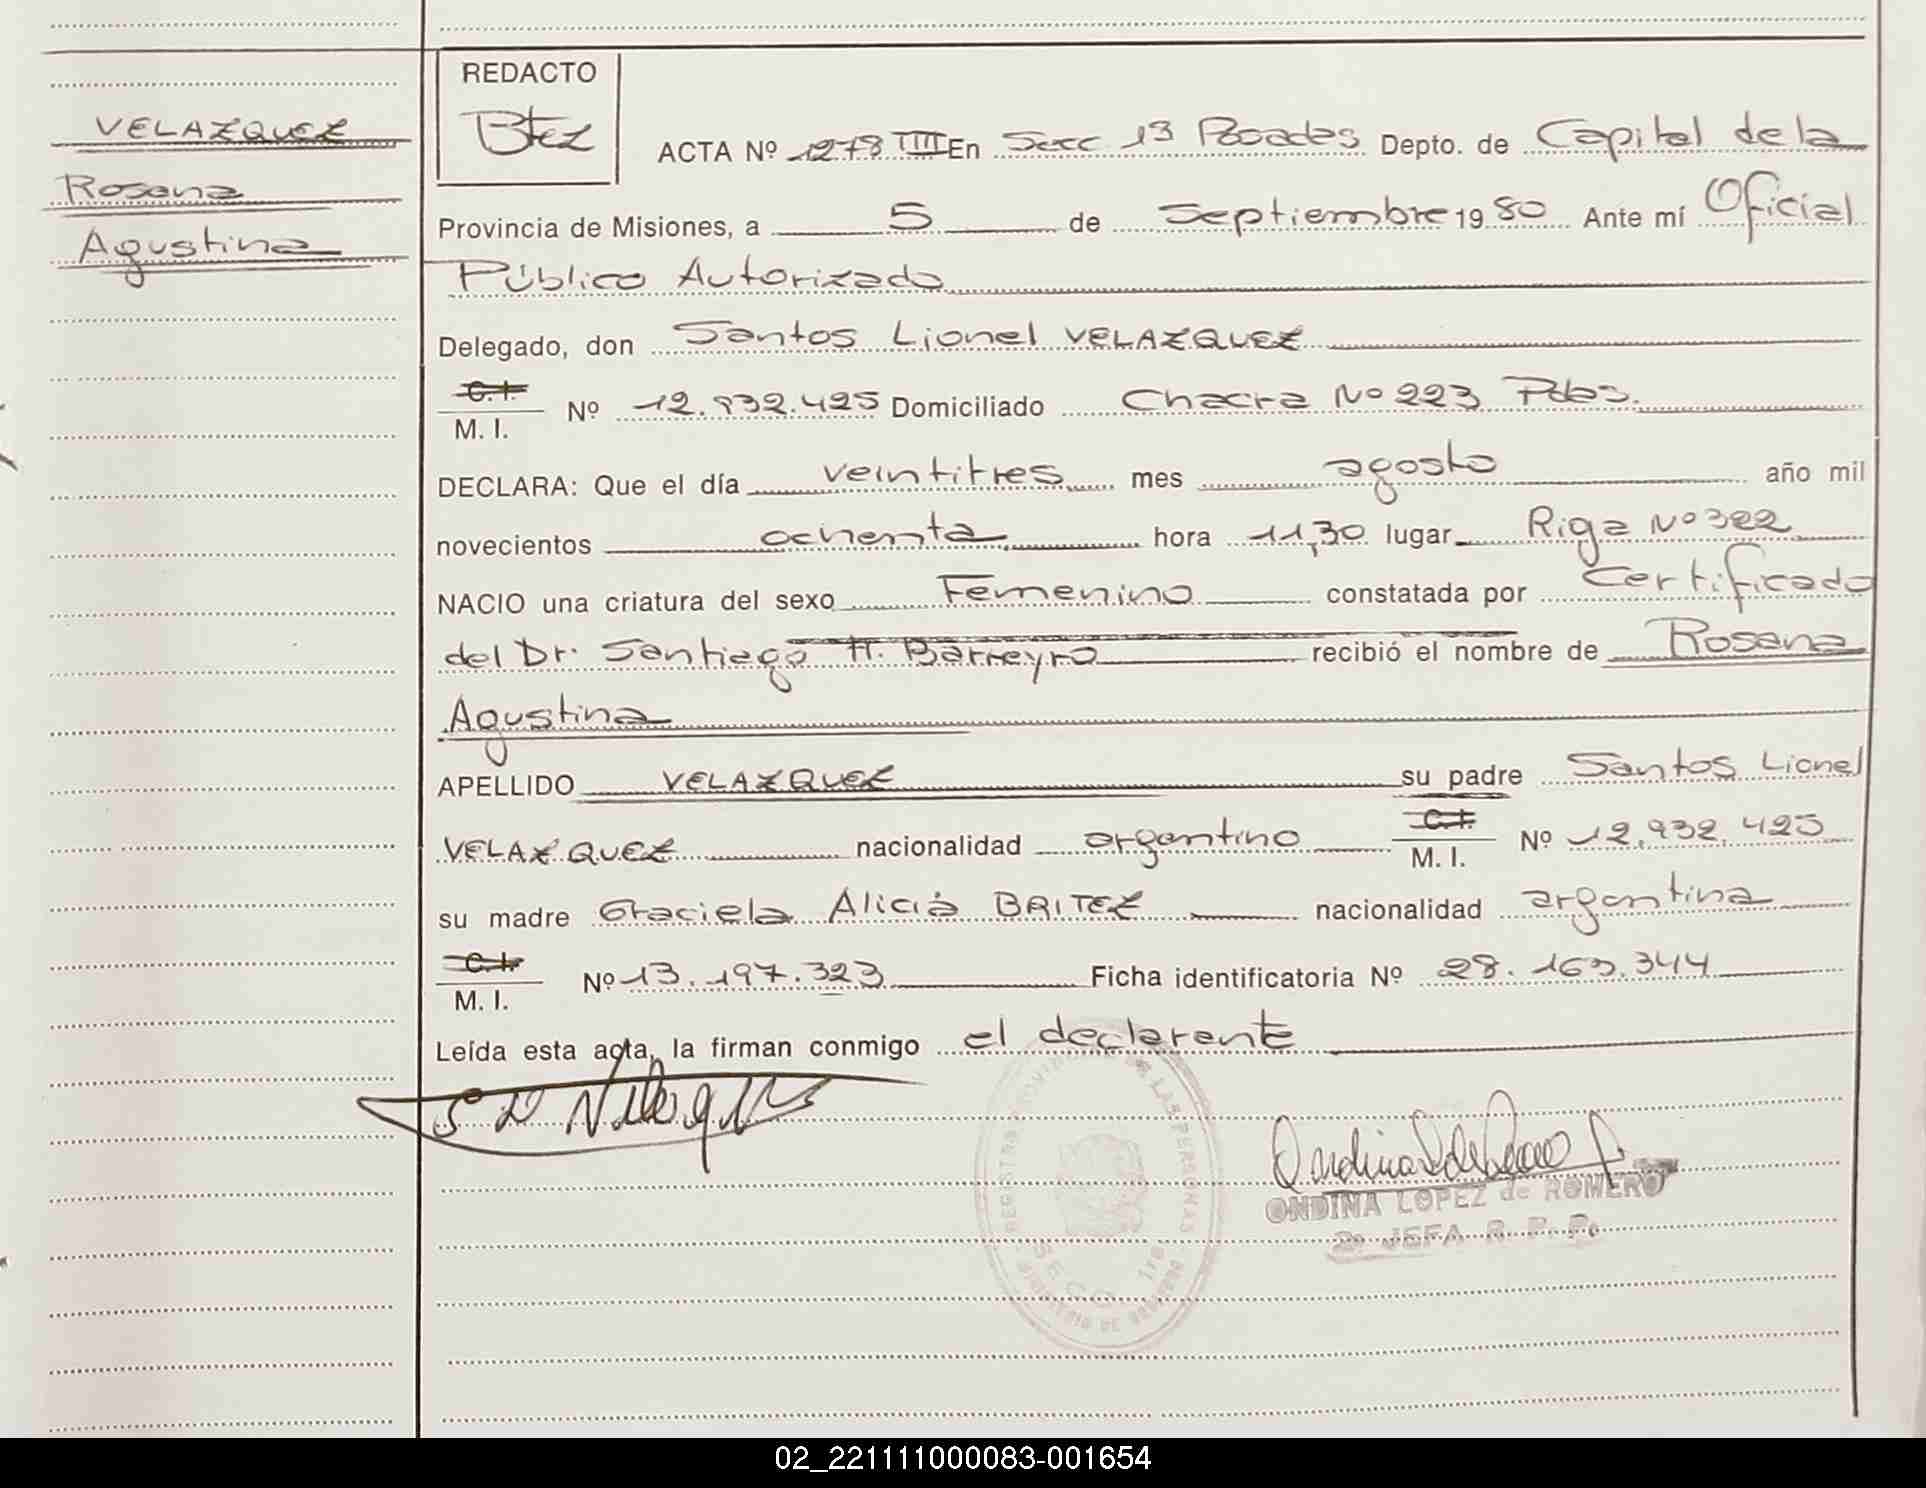 VELAZQUEZ
Rosana
Agustina
REDACTO
Btez
ACTA Nº 1278 TIII En Secc. 1ª Posadas Depto. de Capital de la
Provincia de Misiones, a 5 de Septiembre 1980 Ante mí Oficial
Público Autorizado
Delegado, don Santos Lionel VELAZQUEZ
C. I.
M. I. Nº 12.932.425 Domiciliado Chacra Nº 223 Pdas.
DECLARA: Que el día veintitres mes agosto año mil
novecientos ochenta hora 11,30 lugar Riga Nº 322
NACIO una criatura del sexo Femenino constatada por Certificado
del Dr. Santiago H. Barreyro recibió el nombre de Rosana
Agustina
APELLIDO VELAZQUEZ su padre Santos Lionel
VELAZQUEZ nacionalidad argentino C. I. M. I. Nº 12.932.425
su madre Graciela Alicia BRITEZ nacionalidad argentina
C. I.
M. I. Nº 13.197.323 Ficha identificatoria Nº 28.163.344
Leída esta acta, la firman conmigo el declarente
ONDINA LOPEZ de ROMERO
2º JEFA R. P. P.
REGISTRO PROVINCIAL DE LAS PERSONAS
SECC. 1ra
MINISTERIO DE GOBIERNO
02_221111000083-001654